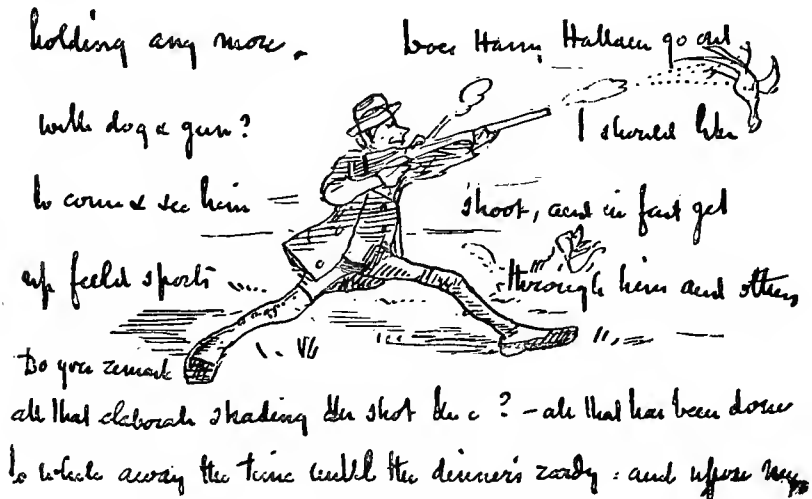 holding any more. Does Harry Hallam go out
with dog & gun? I should like
to come & see him shoot, and in fact get
up field sports through him and others
Do you remark
all that elaborate shading the shot &c? – all that has been done
to while away the time until the dinner's ready: and upon my